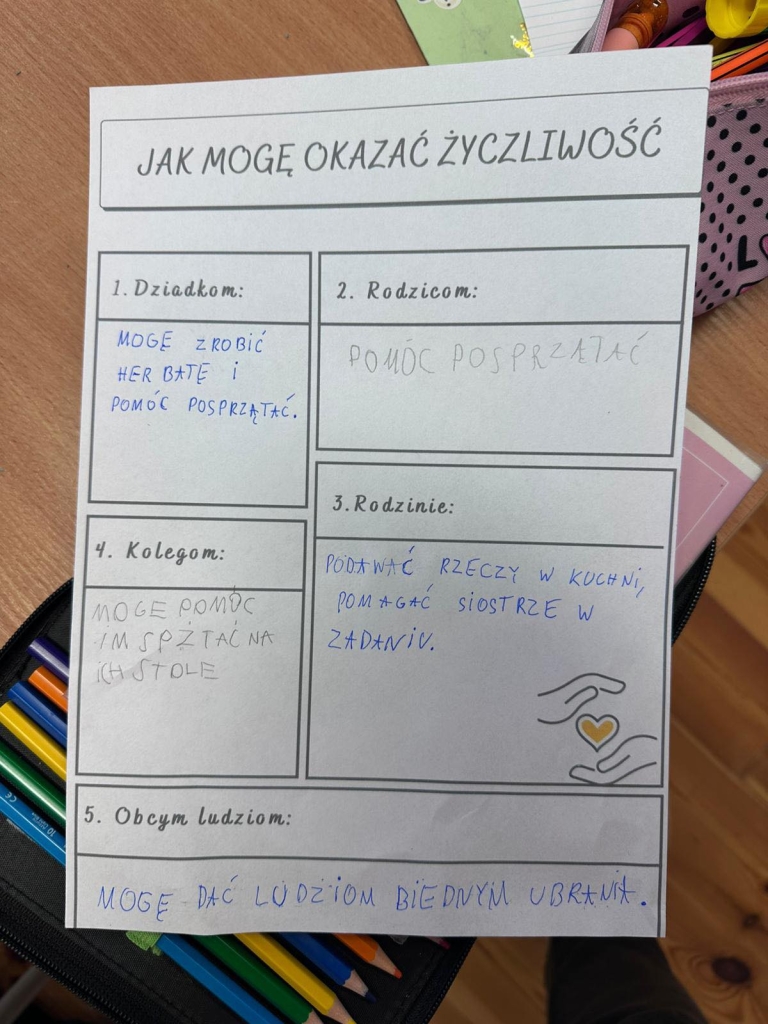 JAK MOGĘ OKAZAĆ ŻYCZLIWOŚĆ
1. Dziadkom:
MOGĘ ZROBIĆ
HERBATĘ i
POMÓC POSPRZĄTAĆ.
2. Rodzicom:
POMÓC POSPRZĄTAĆ
3. Rodzinie:
PODAWAĆ RZECZY W KUCHNi,
POMAGAĆ SiOSTRZE W
ZADANiU.
4. Kolegom:
MOGE POMÓC
IM SPŻTAĆ NA
iCH STOLE
5. Obcym ludziom:
MOGĘ DAĆ LUDZiOM BiEDNYM UBRANiA.